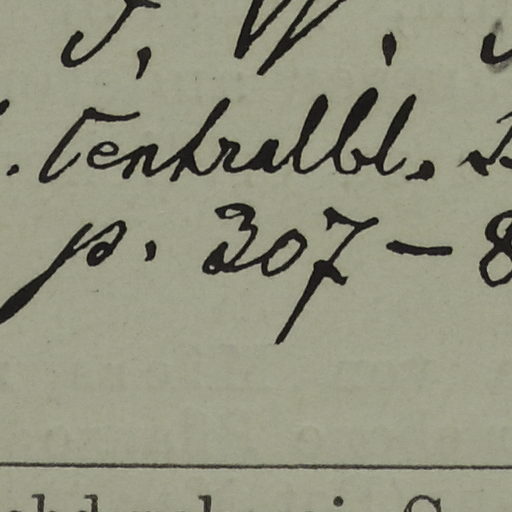 J. W.
. Centralbl.
p. 307-8